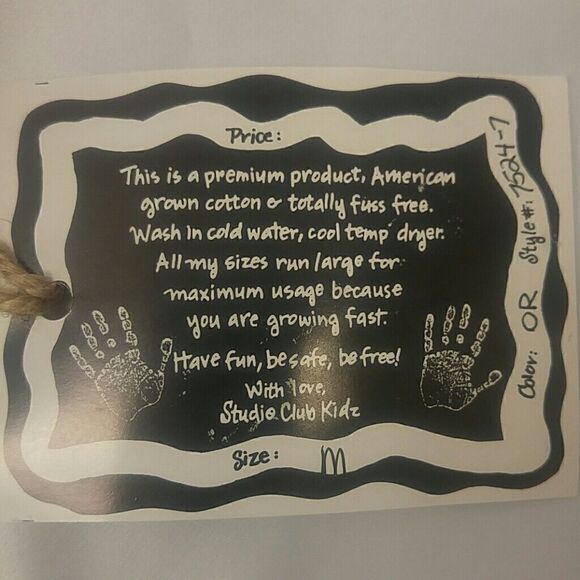 Price:
This is a premium product, American
grown cotton & totally fuss free.
Wash in cold water, cool temp dryer.
All my sizes run large for
maximum usage because
you are growing fast.
Have fun, be safe, be free!
With love,
Studio Club Kidz
Size: M
Color: OR Style#: 7524-7